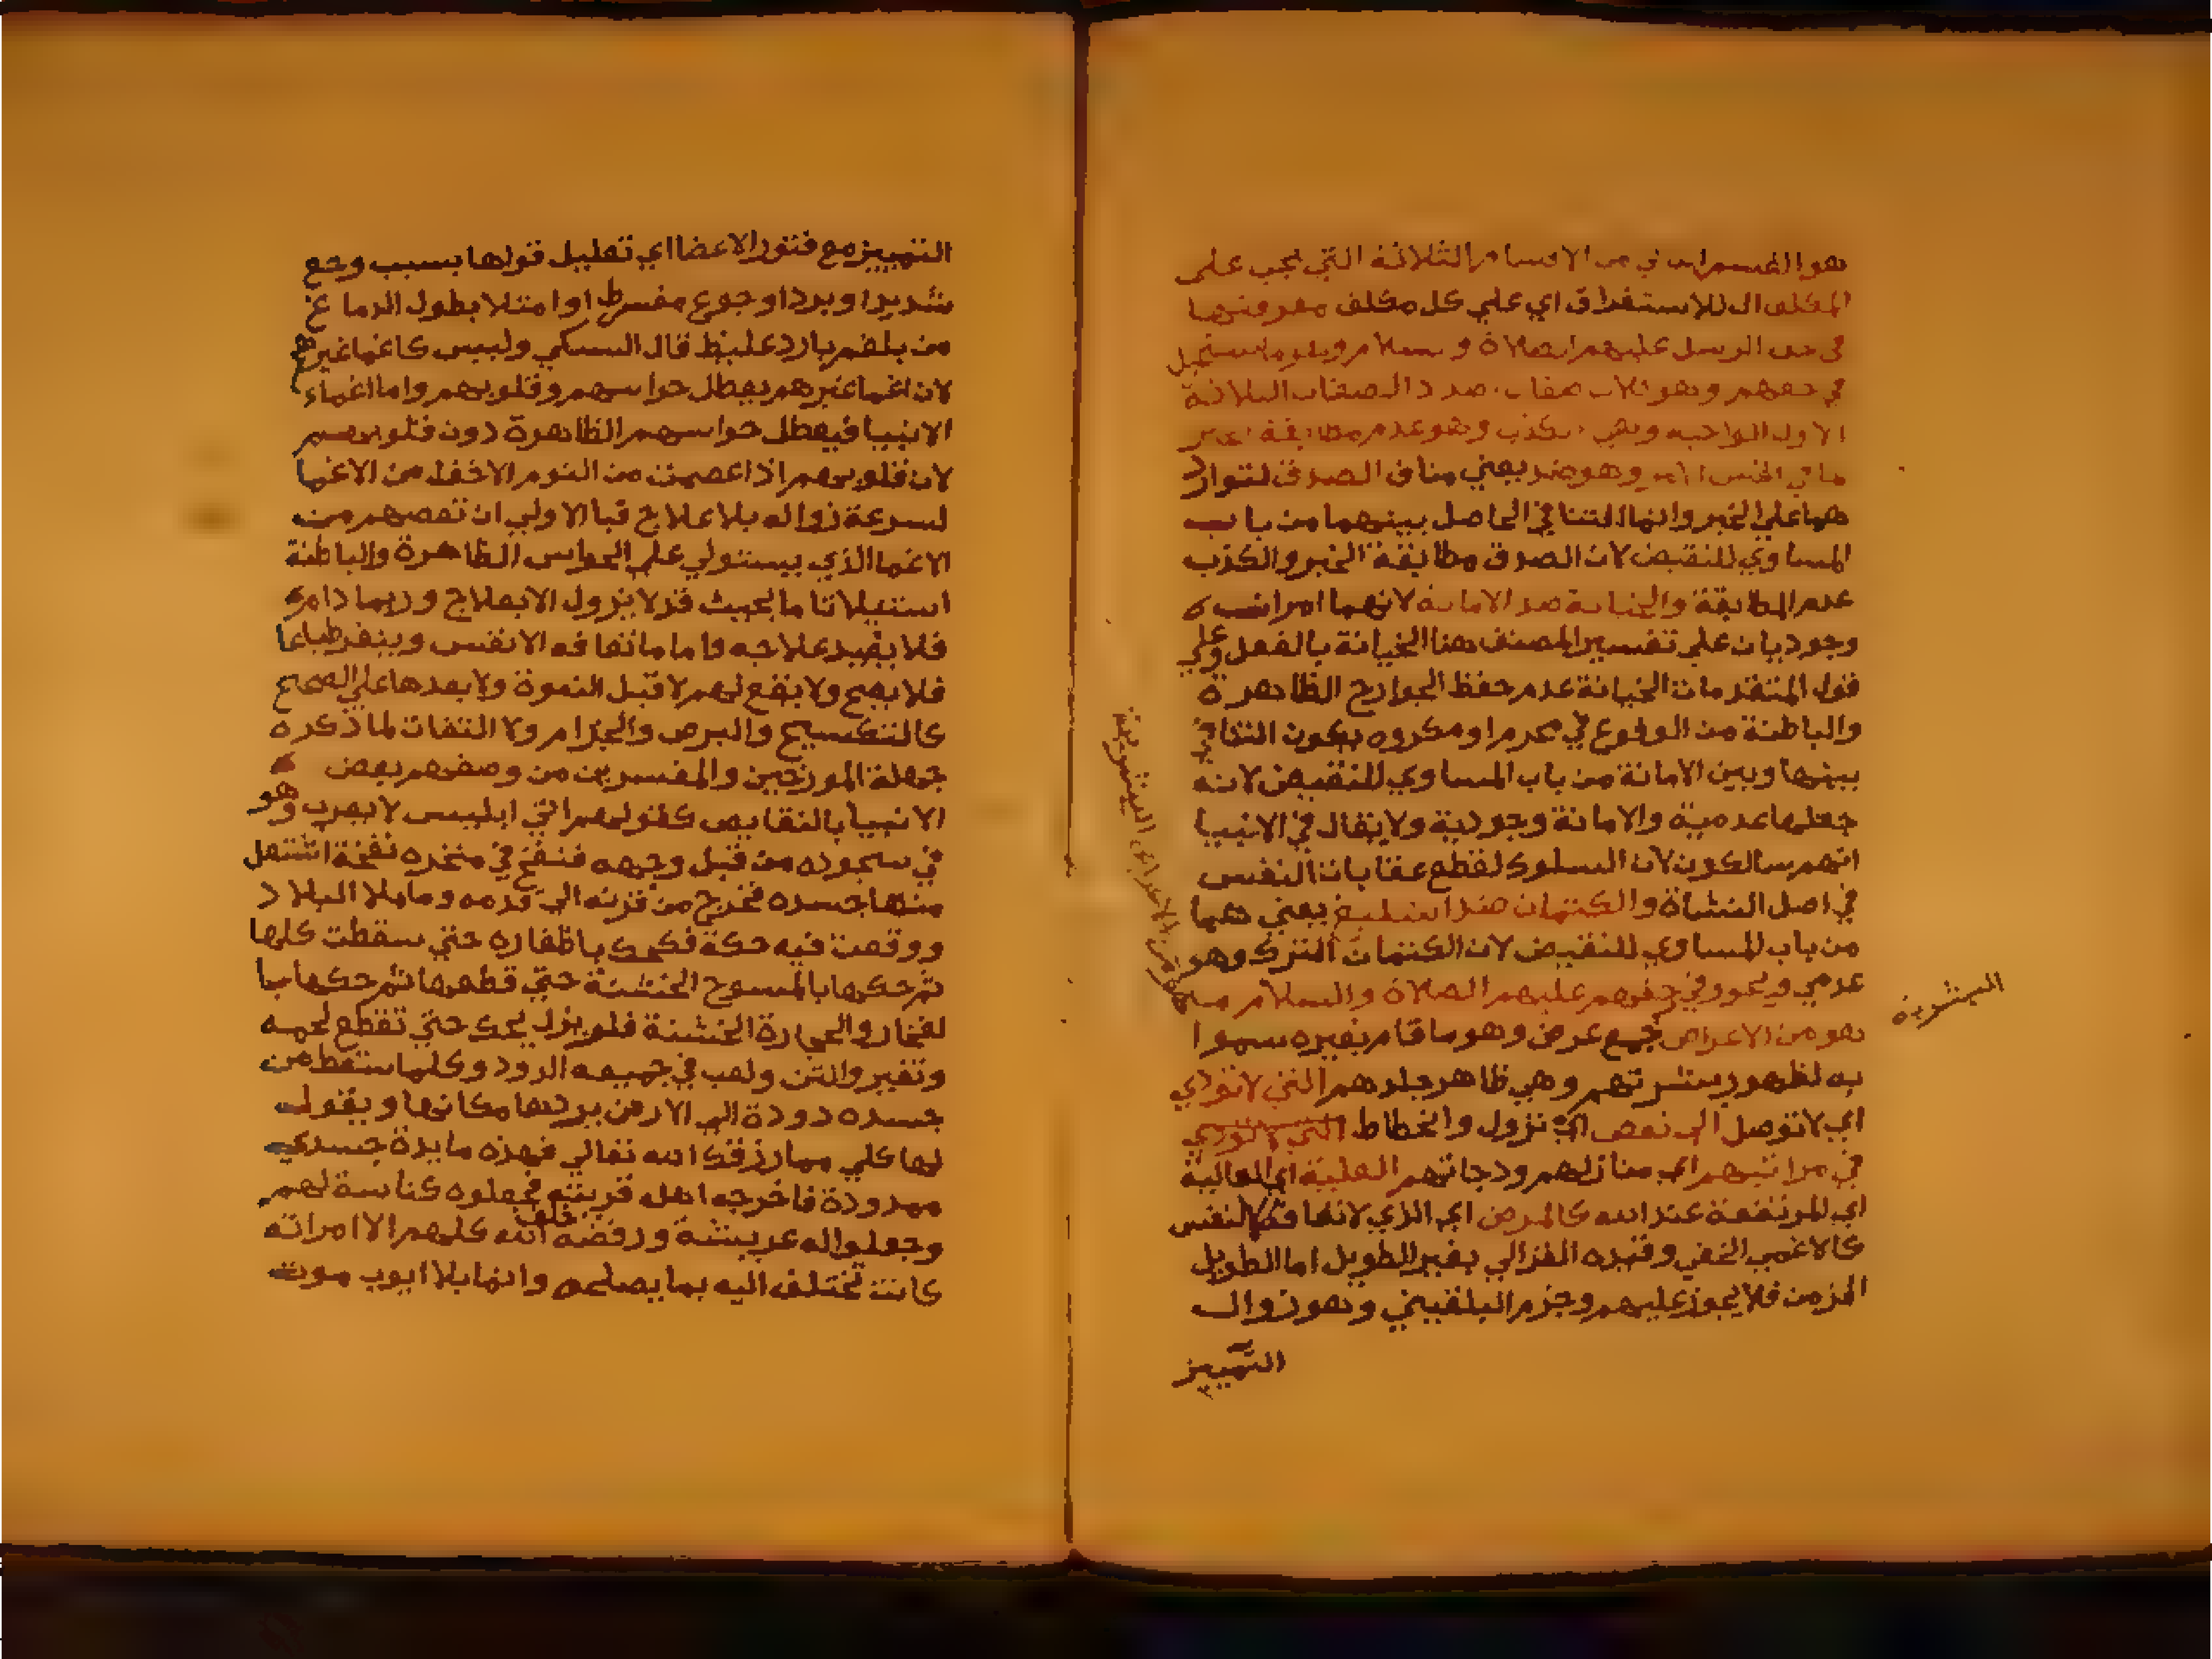 هو القسم الثاني من الاقسام الثلاثة التي يجب على
المكلف ال للاستغراق اي علي كل مكلف معرفتها
في حق الرسل عليهم الصلاة والسلام وهو ما يستحيل
في حقهم وهو ثلاث صفات ضد الصفات الثلاثة
الاول الواجبة وهي الكذب وهو عدم مطابقة الخبر
ما في نفس الامر وهو ضد يعني مناف الصدق لتوارد
هما علي الخبر وانما التنافي الحاصل بينهما من باب
المساوي للنقيض لان الصدق مطابقة الخبر والكذب
عدم المطابقة والخيانة ضد الامانة لانهما امران
وجوديان علي تفسير المصنف هنا الخيانة بالفعل وعلي
قول المتقدمات الخيانة عدم حفظ الجوارح الظاهرة
والباطنة من الوقوع في محرم او مكروه يكون التنافي
بينها وبين الامانة من باب المساوي للنقيض لانه
جعلها عدمية والامانة وجودية ولا يقال في الانبيا
انهم سالكون لان السلوك لقطع عقابات النفس
في اصل النشاة والكتمان ضد التبليغ يعني هما
من باب المساوي للنقيض لان الكتمان الترك وهو
عدمي ويجوز في حقهم عليهم الصلاة والسلام ما
هو من الاعراض جمع عرض وهو ما قام بغيره سموا
البشرية
ما هو من الاعراض البشرية
به لظهور بشرتهم وهي ظاهر جلدهم التي لا تؤدي
اي لا توصل الي نقص اي نزول وانحطاط التي لا تودي
في مراتبهم اي منازلهم ودجاتهم العلية اي العالية
اي المرتفعة عند الله كالمرض اي الذي لا تعافه النفس
كالاغمي الخفي وقيده الغزالي بغير الطويل اما الطويل
المزمن فلا يجوز عليهم وجزم البلقيني وهو زوال
التمييز
التمييز مع فتور الاعضا اي تقليل قواها بسبب وجع
شديد او برد او جوع مفرط او امتلا بطول الدماغ
من بلغم بارد غليظ قال السبكي وليس كاغما غيرهم
لان اغما غيرهم يعطل حواسهم وقلوبهم واما اغماء
الانبيا فيعطل حواسهم الظاهرة دون قلوبهم
لان قلوبهم اذا عصمت من النوم الاخف من الاغما
لسرعة زواله بلا علاج فبالاولي ان تعصهم من
الاغما الذي يستولي علي الحواس الظاهرة والباطنة
استيلا تاما بحيث قد لا يزول الا بعلاج وربما دام
فلا يفيد علاجه واما ما تعافه الانفس وينفر طباعا
فلا يصح ولا يقع لهم لا قبل النبوة ولا بعدها علي الصحيح
كالتكسيح والبرص والجذام ولا التفات لما ذكره
جملة المورخين والمفسرين من وصفهم بعض
الانبيا بالنقايص كقولهم اتي ابليس لايوب وهو
في سجوده من قبل وجهه فنفخ في منخره نفخة اشتعل
منها جسده فخرج من قرنه الي قدمه وما بلا البلاد
ووقعت فيه حكة فكحك باظفاره حتي سقطت كلها
ثم حكها بالمسوح الخشنة حتي قطعها ثم حكها با
لفخار والحجارة الخشنة فلم يزل يحك حتي تقطع لحمه
وتغير وانتن ولعب في جميعه الدود وكلما سقط من
جسده دودة الي الارض يردها مكانها ويقول
لها كلي مما رزقك الله تعالي فهذه مايدة جسدي
ممدودة فاخرجه اهل قريته فجعلوه كناسة لهم
وجعلوا له عريشة ورفضه خلف الله كلهم الا امراته
كانت تختلف اليه بما يصلحه وانما بلا ايوب موت